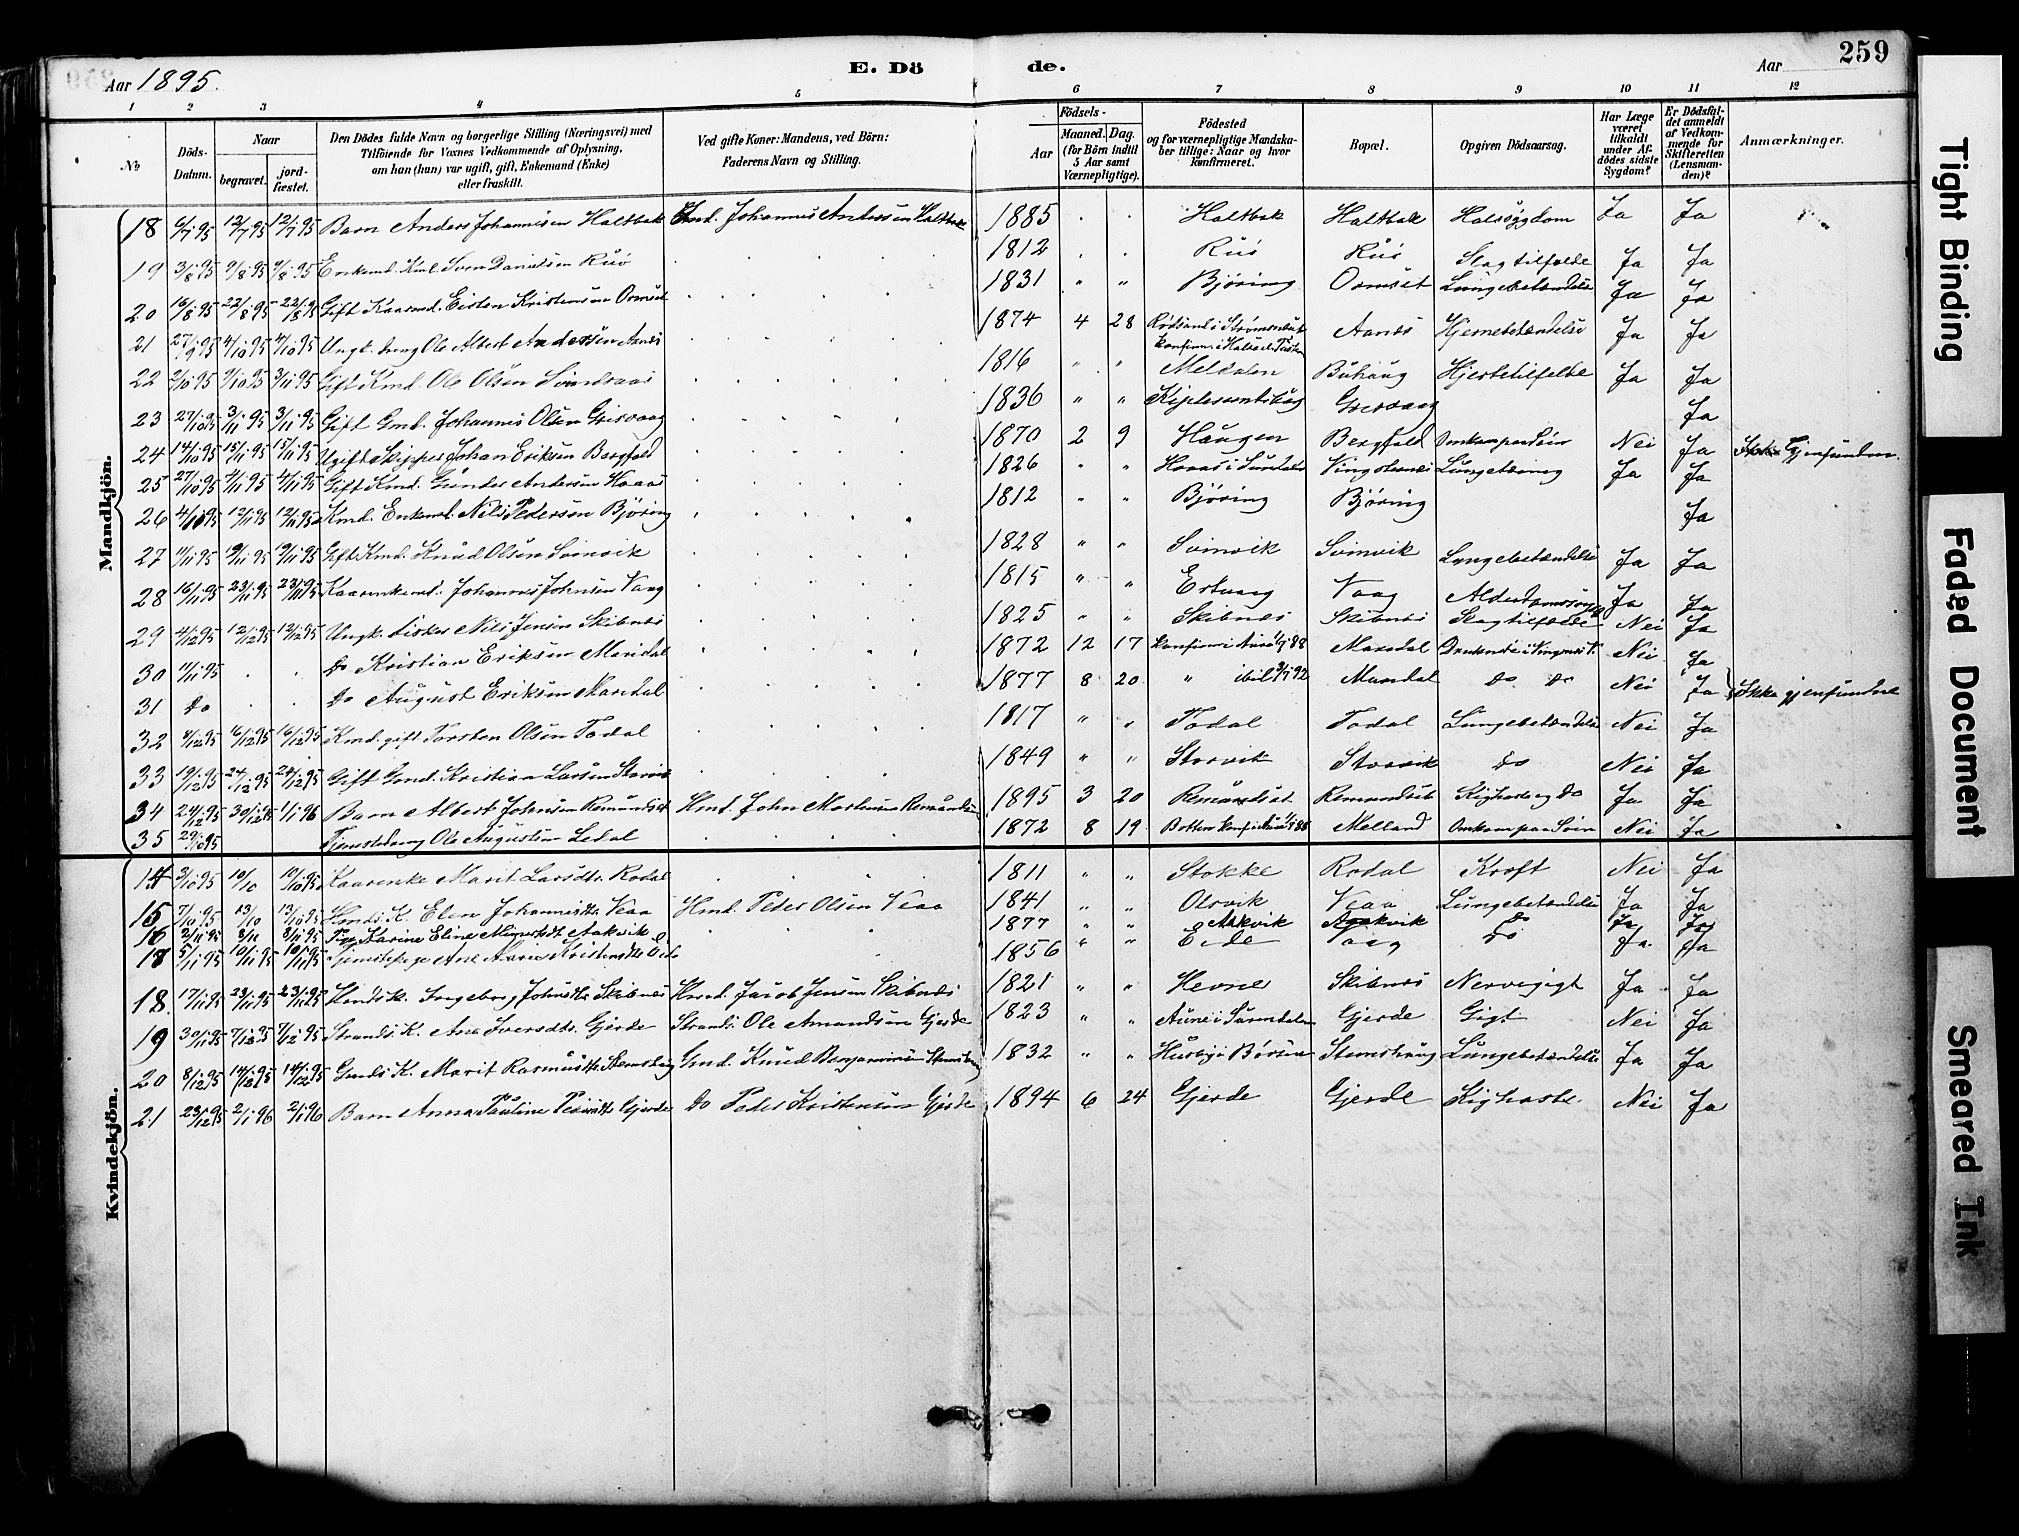 259
Aar 1895.
E. Dö de.
Aar
1 2 3 4 5 6 7 8 9 10 11 12
No
Döds-Datum.
Naar
begravet.
jord-fæstet.
Den Dödes fulde Navn og borgerlige Stilling (Næringsvei) med
Tilföiende for Voxnes Vedkommende af Oplysning,
om han (hun) var ugift, gift, Enkemand (Enke)
eller fraskilt.
Ved gifte Koner: Mandens, ved Börn:
Faderens Navn og Stilling.
Födsels-
Aar
Maaned. Dag.
(for Börn indtil
5 Aar samt
Værnepligtige).
Födested
og for værnepligtige Mandska-
ber tillige: Naar og hvor
konfirmeret.
Bopæl.
Opgiven Dödsaarsag.
Har Læge
været
tilkaldt
under Af-
dödes sidste
Sygdom?
Er Dödsfal-
det anmeldt
af Vedkom-
mende for
Skifteretten
(Lensman-
den)?
Anmærkninger.
Mandkjön.
18 6/7 95 12/7 95 12/7 95 Barn Anders Johannesen Haltbak Gmd. Johannes Anderssen Haltbak 1885 Haltbak Haltbak Halssygdom Ja Ja
19 3/8 95 9/8 95 9/8 95 Enkemd. Kml. Sven Danielsen Ruö 1812 Ruö Ruö Slagtilfælde Ja Ja
20 16/8 95 22/8 95 22/8 95 Gift Kaarmd. Eisten Kristensen Ormset 1831 " " Björing Ormset Lungebetændelse Ja Ja
21 27/9 95 4/10 95 4/10 95 Ungk. Ole Albert Anderssen Aanes 1874 4 28 Rödsand i Strömsneset Aanes Hjernebetændelse Ja Ja
22 2/10 95 9/10 95 3/11 95 Gift Kmd. Ole Olsen Svindsaas 1816 " " Meldalen Buhaug Hjertetilfælde Ja Ja
23 27/10 95 3/11 95 3/11 95 Gift Gmd. Johannes Olsen Grisvaag 1836 " " Grisvaag Ja
24 14/10 95 15/11 95 15/11 95 Ugift Skipper Johan Eriksen Bergfald 1870 2 9 Haugen Bergfald Omkom paa Söen Nei Ja Gjenfunden.
25 27/10 95 4/11 95 4/11 95 Gift Kmd. Gunder Andersen Hoaas 1826 " " Hoaas i Surdalen Vingsternes Lungetæring Ja Ja
26 4/11 95 12/11 95 12/11 95 Kmd. Enkemd. Nils Pedersen Björing 1812 " " Björing Björing Ja
27 11/11 95 19/11 95 19/11 95 Gift Kmd. Knud Olsen Svinvik 1828 " " Svinvik Svinvik Lungebetændelse Ja Ja
28 16/11 95 23/11 95 23/11 95 Kaarenkemd. Johannes Johnsen Vaag 1815 " Estvaag Vaag Alderdomssvag Ja Ja
29 4/12 95 12/12 95 12/12 95 Ungk. Fisker Nils Jensen Skibnes 1825 " " Skibnes Skibnes Slagtilfælde Nei Ja
30 11/11 95 Do Kristian Eriksen Maridal 1872 12 17 Mardal Nei Ja
31 Do Do August Eriksen Maridal 1877 8 20 " Mardal Do Do Nei Ja Ikke gjenfundne
32 9/12 95 16/12 95 16/12 95 Kmd. gift Torsten Olsen Todal 1817 " " Todal Todal Lungebetændelse Nei Ja
33 19/12 95 24/12 95 24/12 95 Gift Gmd. Kristian Larsen Storvik 1849 " " Storvik Storvik Do Nei Ja
34 24/12 95 30/12 95 1/1 96 Barn Albert Johnsen Remundset Hmd. John Mortensen Remundset 1895 3 20 Remundset Remundset Kighoste og Do Ja Ja
35 29/10 95 Tjenestedreng Ole Augustin Ledal 1872 8 19 Melland Omkom paa Söen Nei Ja
Kvindekjön.
14 3/10 95 10/10 10/10 95 Kaarenke Marit Larsdtr. Rodal 1811 " " Stokke Rodal Kræft Nei Ja
15 7/10 95 13/10 13/10 95 K. Elen Johannesdtr. Veaa Hmd. Peder Olsen Veaa 1841 " " Olsvik Veaa Lungebetændelse Ja Ja
16 2/11 95 8/11 8/11 95 Karine Eline Aakvik 1877 " " Aakvik Aakvik Do Ja Ja
18 5/11 95 10/11 95 10/11 95 Tjenestepige Ane Marie Kristensdtr. Eide 1856 " " Eide Vaag Do Ja Ja
18 17/11 95 23/11 95 23/11 95 K. Ingeborg Johnsdtr. Skibnes Hmd. Jacob Jensen Skibnes 1821 " " Hevne Skibnes Nervegigt Ja Ja
19 30/11 95 7/12 95 7/12 95 Strands. K. Ane Iversdtr. Gjerde Strands. Ole Amundsen Gjerde 1823 " " Aune i Surendalen Gjerde Gigt Nei Ja
20 8/12 95 14/12 95 14/12 95 Gmds K. Marit Rasmusdtr. Stemshaug Gmd. Knud Benjaminsen Stemshaug 1832 " " Husby i Börsen Stemshaug Lungebetændelse Ja Ja
21 23/12 95 2/1 96 2/1 96 Barn Anna Pauline Pedersdtr. Gjerde Do Peder Kristensen Gjerde 1894 6 24 Gjerde Gjerde Kighoste Nei Ja
Tight Binding
Faded Document
Smeared Ink